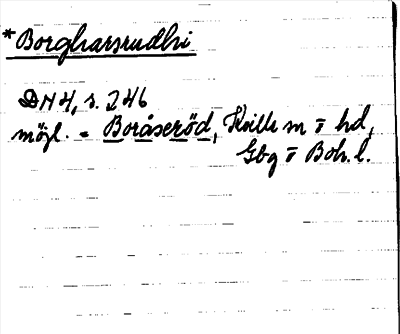 *Borgharsrudhi
DN 4, s. 246
möjl. = Boråseröd, Kville sn o hd,
Gbg o Boh. l.